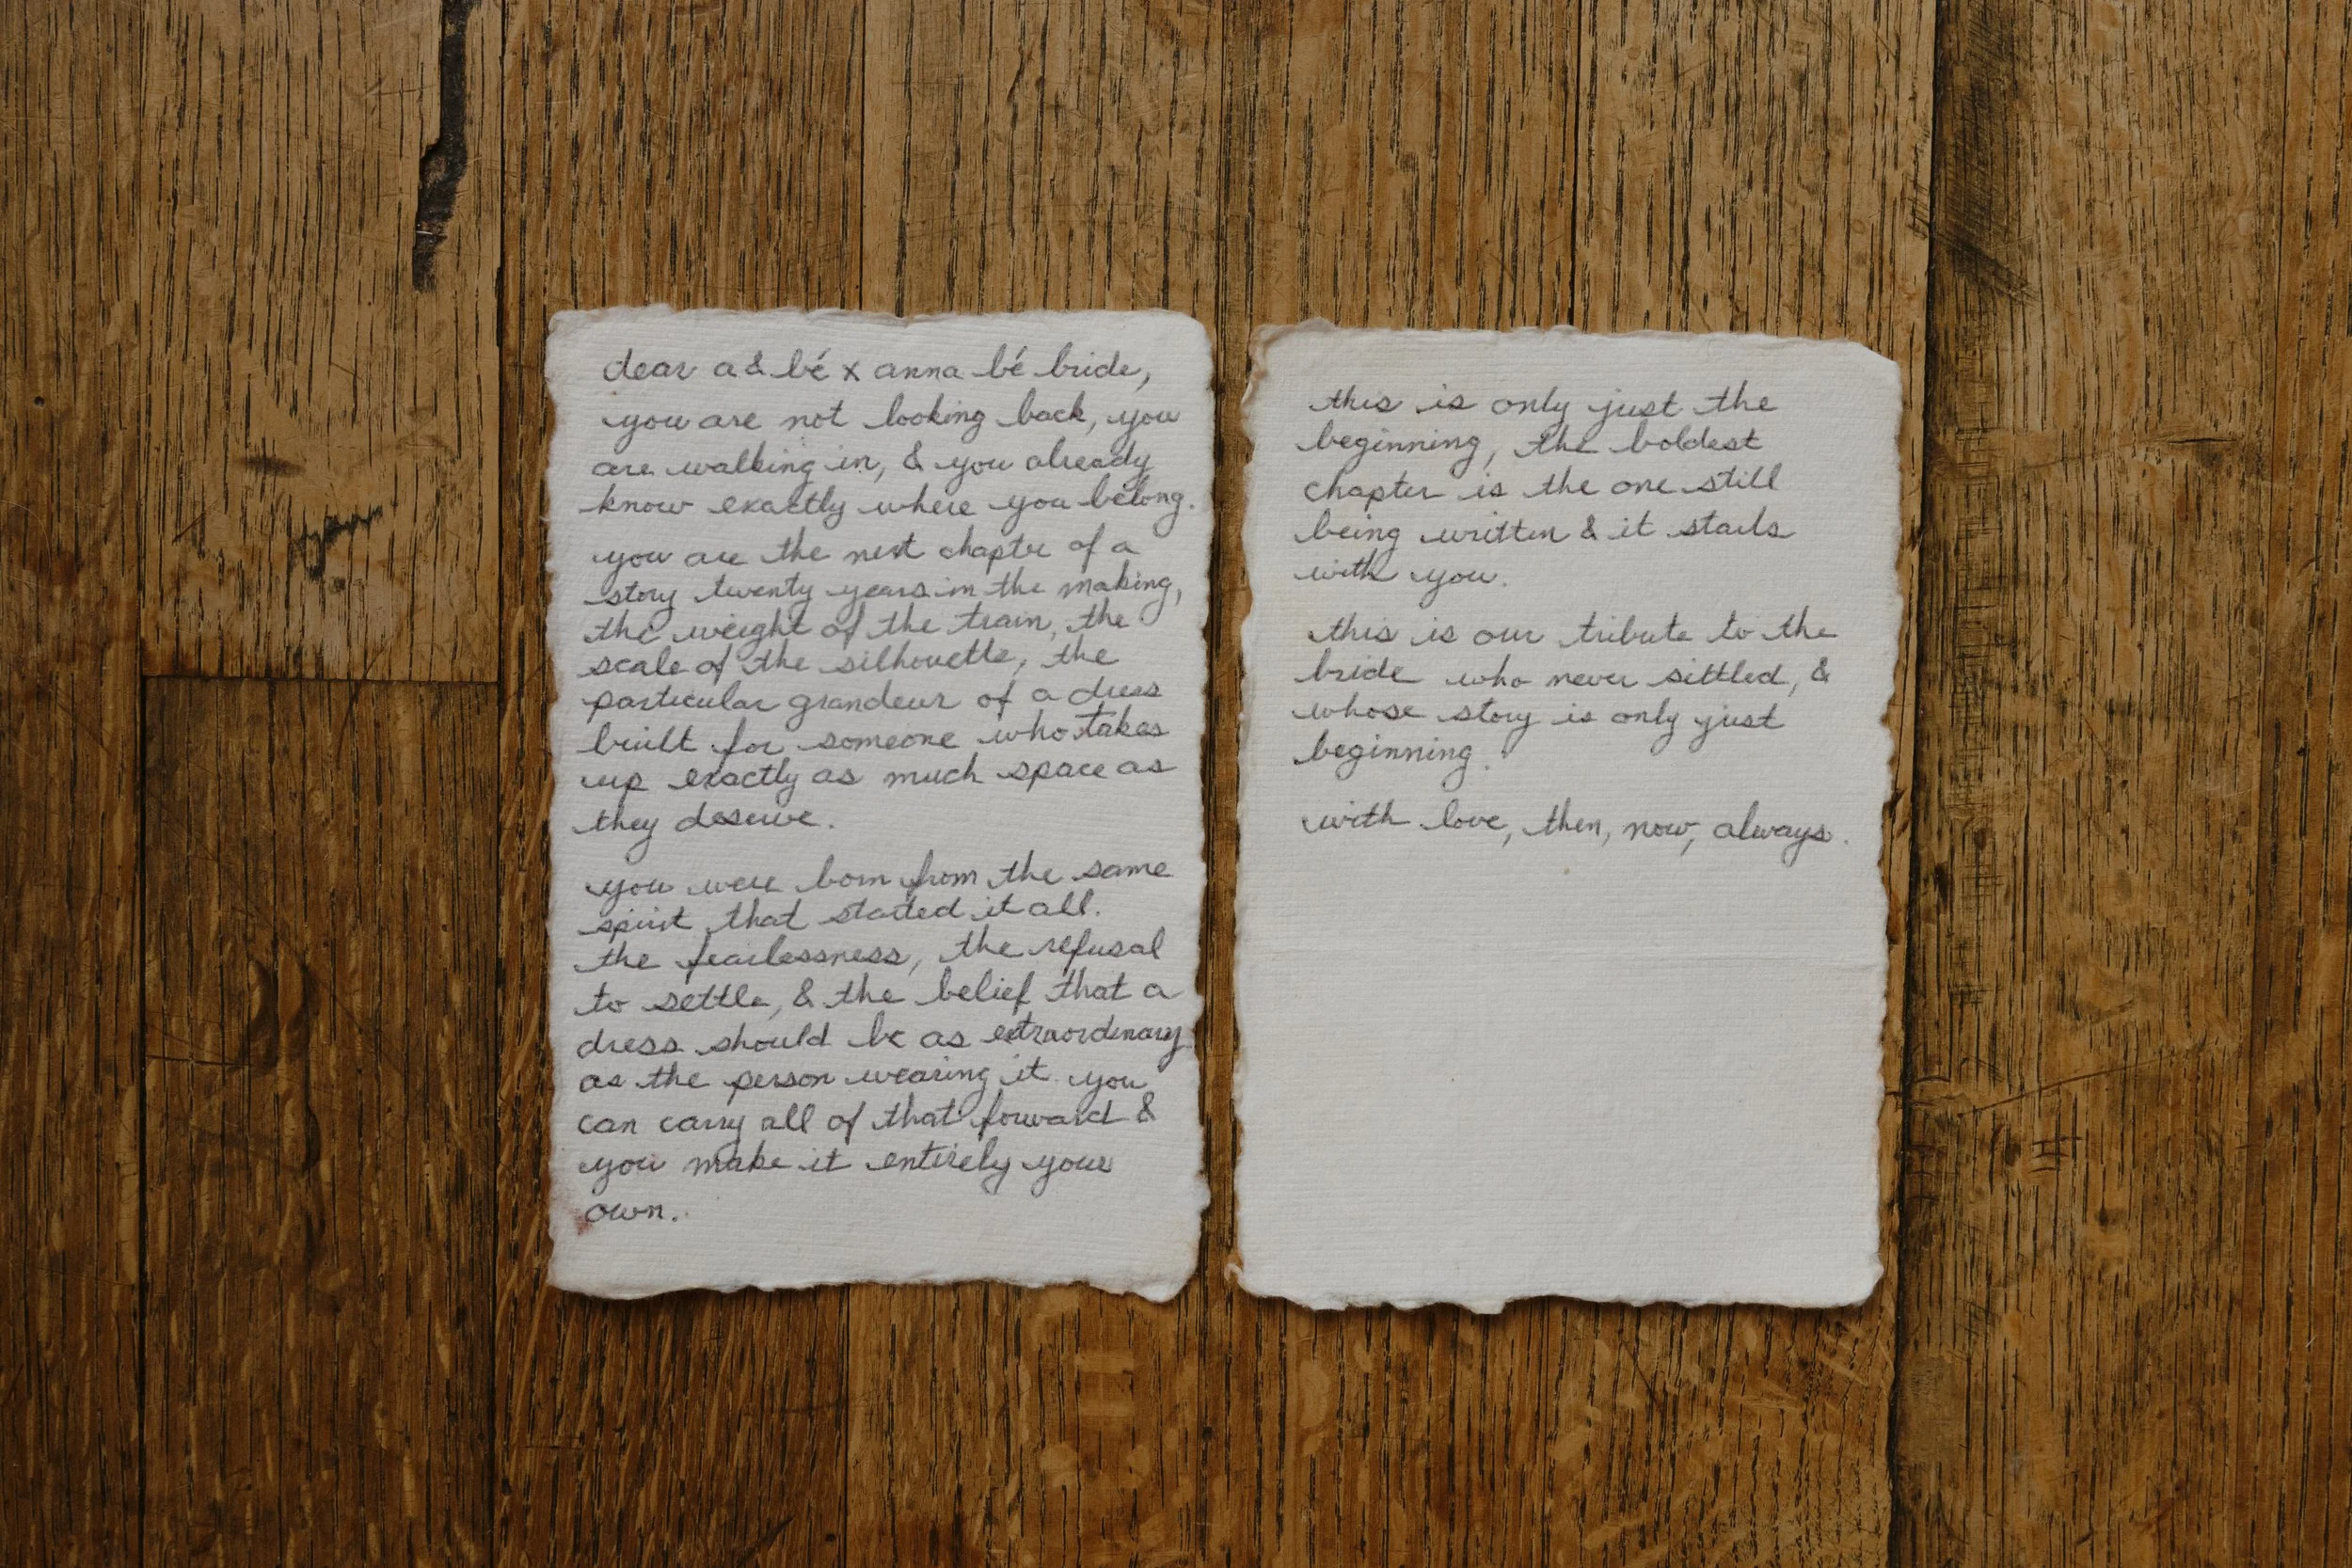 dear a & bé x anna bé bride,
you are not looking back, you
are walking in, & you already
know exactly where you belong.
you are the next chapter of a
story twenty years in the making,
the weight of the train, the
scale of the silhouette, the
particular grandeur of a dress
built for someone who takes
up exactly as much space as
they deserve.
you were born from the same
spirit that started it all.
the fearlessness, the refusal
to settle, & the belief that a
dress should be as extraordinary
as the person wearing it. you
can carry all of that forward &
you make it entirely your
own.
this is only just the
beginning, the boldest
chapter is the one still
being written & it starts
with you.
this is our tribute to the
bride who never settled, &
whose story is only just
beginning.
with love, then, now, always.